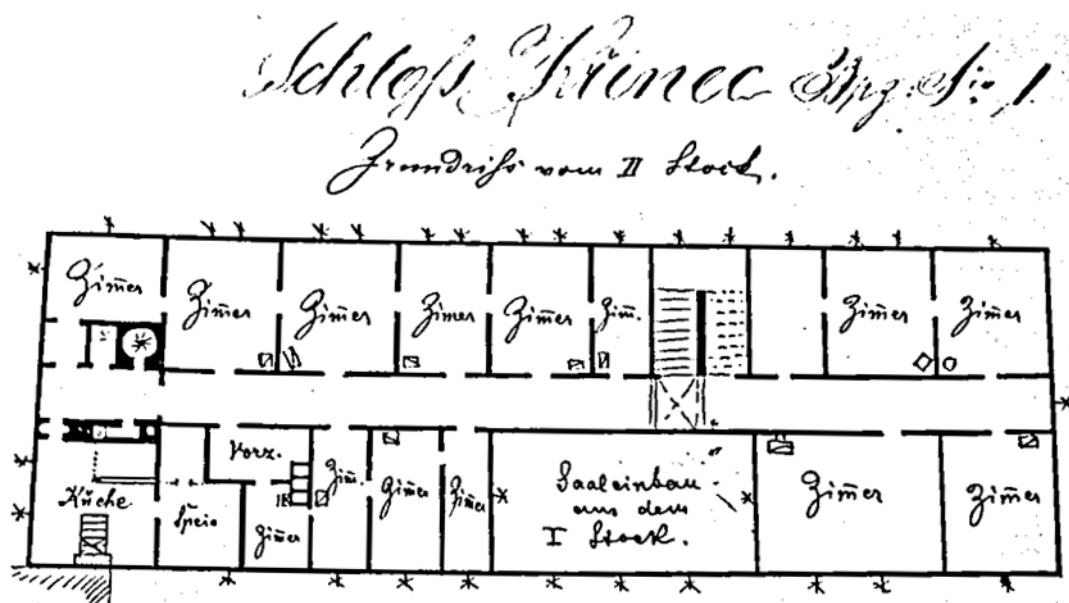 Schloß Křinec
Grundriß vom II Stock.
Zim̄er
Zim̄er
Zim̄er
Zimer
Zim̄er
Zim̄.
Zim̄er
Zim̄er
Küche
Speis
Vorz.
Zim̄er
Zim̄.
Zim̄er
Zim̄er
Saaleinbau
aus dem
I Stock.
Zim̄er
Zim̄er